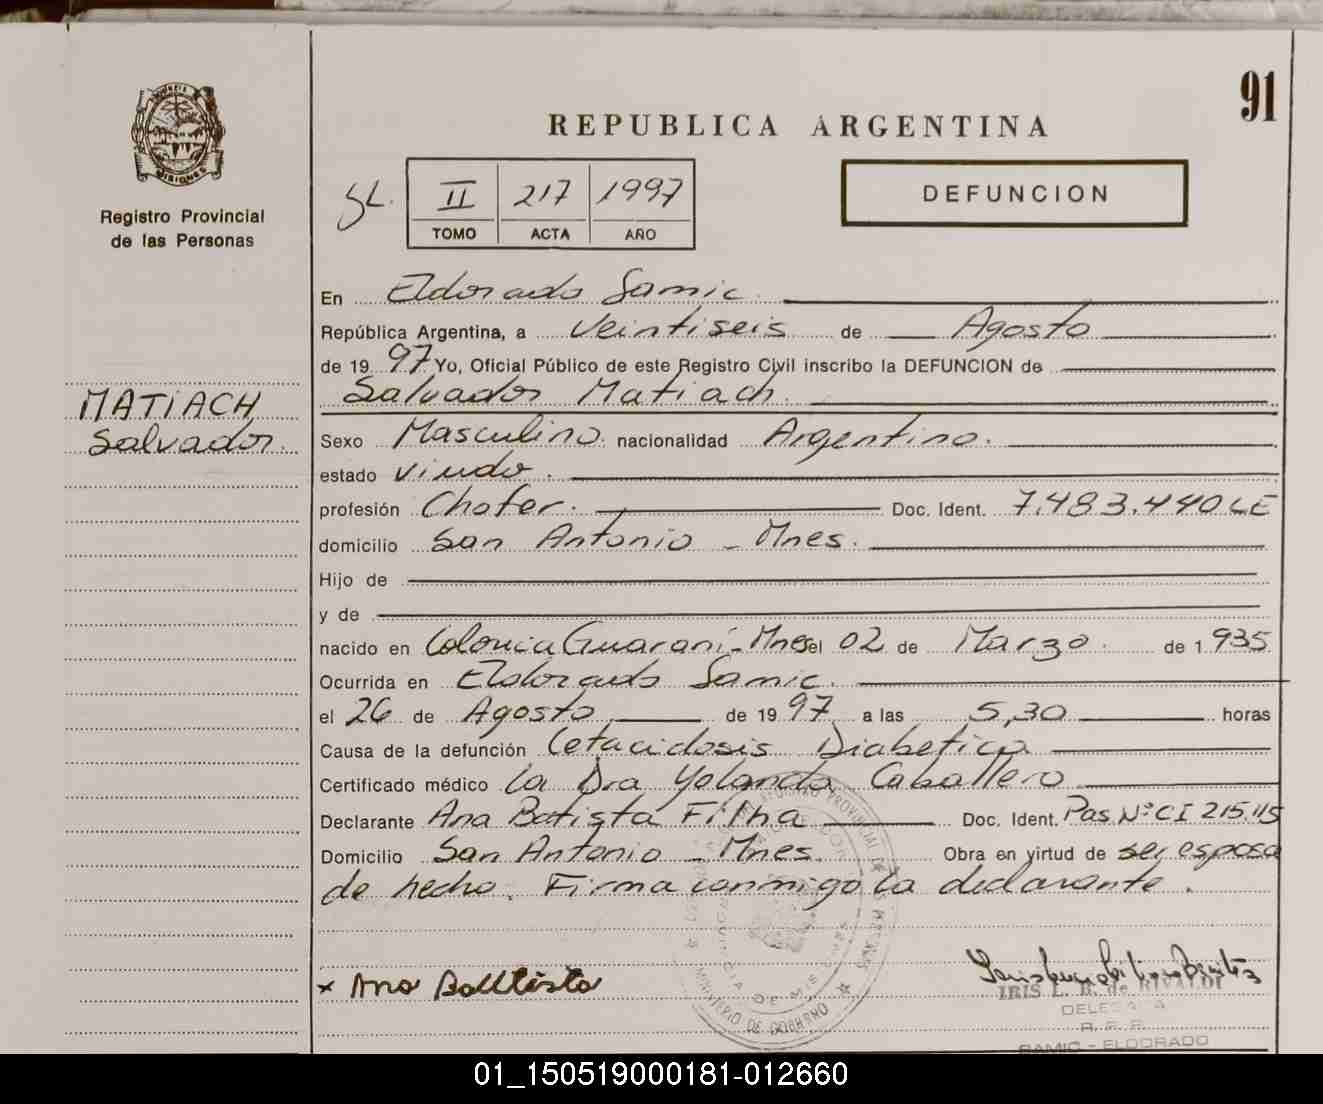 91
REPUBLICA ARGENTINA
MISIONES
Registro Provincial
de las Personas
SL.
II 217 1997
TOMO ACTA AÑO
DEFUNCION
MATIACH
Salvador.
En Eldorado Samic.
República Argentina, a Veintiseis de Agosto
de 1997 Yo, Oficial Público de este Registro Civil inscribo la DEFUNCION de
Salvador Matiach.
Sexo Masculino. nacionalidad Argentino.
estado viudo.
profesión Chofer. Doc. Ident. 7.483.440 LE
domicilio San Antonio - Mnes.
Hijo de
y de
nacido en Colonia Guaraní - Mnes el 02 de Marzo. de 1935
Ocurrida en Eldorado Samic.
el 26 de Agosto de 1997 a las 5,30 horas
Causa de la defunción Cetacidosis Diabetica
Certificado médico la Dra Yolanda Caballero
Declarante Ana Batista Filha Doc. Ident. Pas. Nº CI 215.115
Domicilio San Antonio - Mnes. Obra en virtud de ser esposa
de hecho. Firma conmigo la declarante.
x Ana Battista
IRIS L. B. de RIVALDI
DELEGADA
R. P. P.
SAMIC - ELDORADO
REGISTRO PROVINCIAL DE LAS PERSONAS
PROVINCIA DE MISIONES
MINISTERIO DE GOBIERNO
01_150519000181-012660